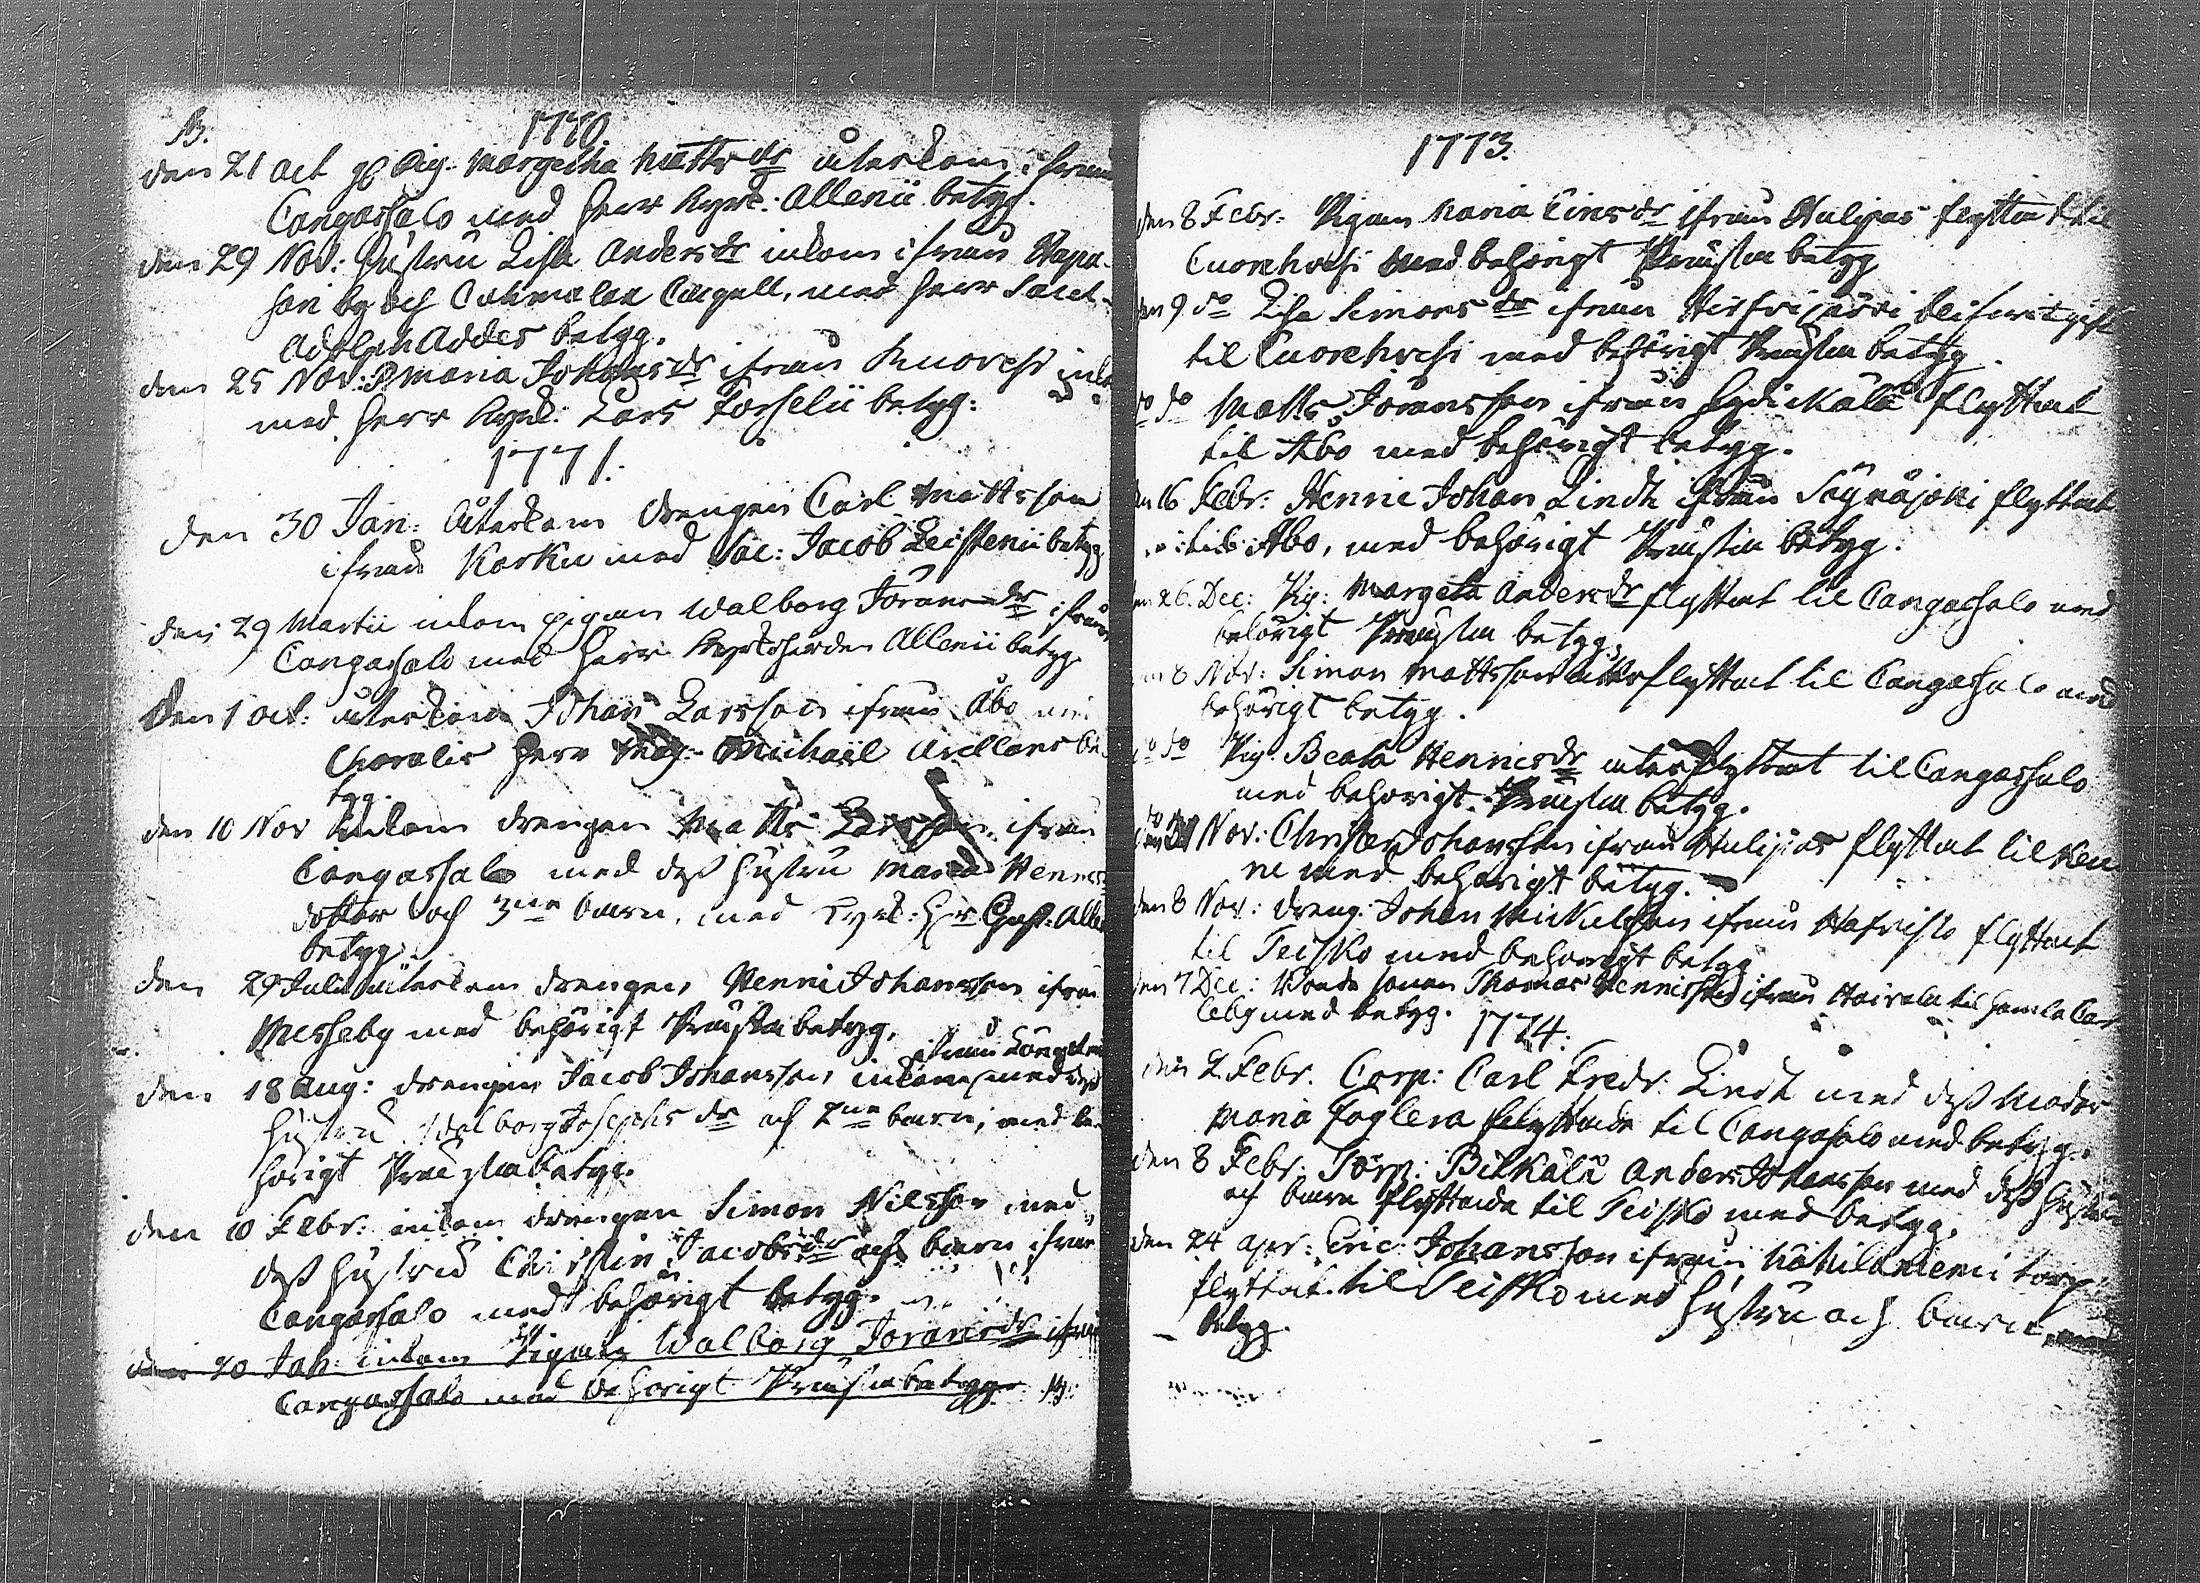 1770.
den 21 oct Pig. Margetha Matts dr återkom ifrån
Cangassalo med Herr Kyrk: Allenii betyg.
den 29 Nov: Hustru Lisa Anders dr inkom ifrån
by och Capell, med Herr Sacel-
Adolph Addes betyg.
den 25 Nov: P. Maria Johans dr ifrån Kuorehvesi
med Herr Kyrk: Lars Forselii betyg:
1771.
den 30 Jan: återkom drengen Carl Mattsson
ifrån Karku med Sac: Jacob Leistenii betyg
den 29 Martii inkom pigan Walborg Jörans dr ifrån
Cangassalo med Herr Kyrkoherden Allenii betyg
den 1 oct: återkom Johan Larsson ifrån Åbo
Choralis Herr Mag: Michaël Avellans be-
tyg.
den 10 Nov inkom drengen Matts Larsson ifrån
Cangassalo med dess Hustru Maria Hennes
dotter och 3ne barn, med Kyrk: Hr Gust: Alle
betyg.
den 29 Julii återkom drengen Henric Johansson ifrån
Messuby med behörigt Prästa betyg.
ifrån
den 18 Aug: drengen Jacob Johansson inkom med dess
Hustru Walborg Josephs dr och 2ne barn, med be-
hörigt Prästa betyg.
den 10 Febr: inkom drengen Simon Nilsson med
dess Hustru Christin Jacobs dr och barn ifrån
Cangassalo med behörigt betyg.
den 20 Jan: inkom Pigan Walborg Jörans dr ifrån
Cangassalo med behörigt Prästa betyg
1773.
den 8 Febr: Pigan Maria Eins dr ifrån Hulipas flyttat til
Cuorehvesi med behörigt Prästa betyg
den 9 do Lisa Simons dr ifrån Hirfvijärvi blifwit gift
til Cuorehvesi med behörigt Prästa betyg.
do do Matts Jöransson ifrån flyttat
til Åbo med behörigt betyg.
den 16 Febr: Henric Johan Lindh ifrån flyttat
til Åbo, med behörigt Prästa betyg.
den 26. Dec: Pig: Margeta Anders dr flyttat til Cangassalo med
behörigt Prästa betyg.
den 8 Nov: Simon Mattsson åter flyttat til Cangassalo med
behörigt betyg.
do do Pig. Beata Hennes dr åter flyttat til Cangassalo
med behörigt Prästa betyg.
Nov: Christer Johansson ifrån Hulipas flyttat til
med behörigt betyg.
den 8 Nov: dreng: Johan Mickelson ifrån flyttat
til Teisko med behörigt betyg
den 7 Dec: Bonde sonen Thomas Hennisson ifrån Hairala til Gamla Car
leby med betyg.
1774:
den 2 Febr. Corp: Carl Fredr: Lindh med dess Moder
Maria Foglera flyttade til Cangasalo med betyg.
den 8 Febr: Torp: Bilkälä Anders Johansson med dess Hustru
och barn flyttade til Teisko med betyg.
den 24 Apr: Eric Johansson ifrån torp
flyttat til Teisko med Hustru och barn, med
betyg.